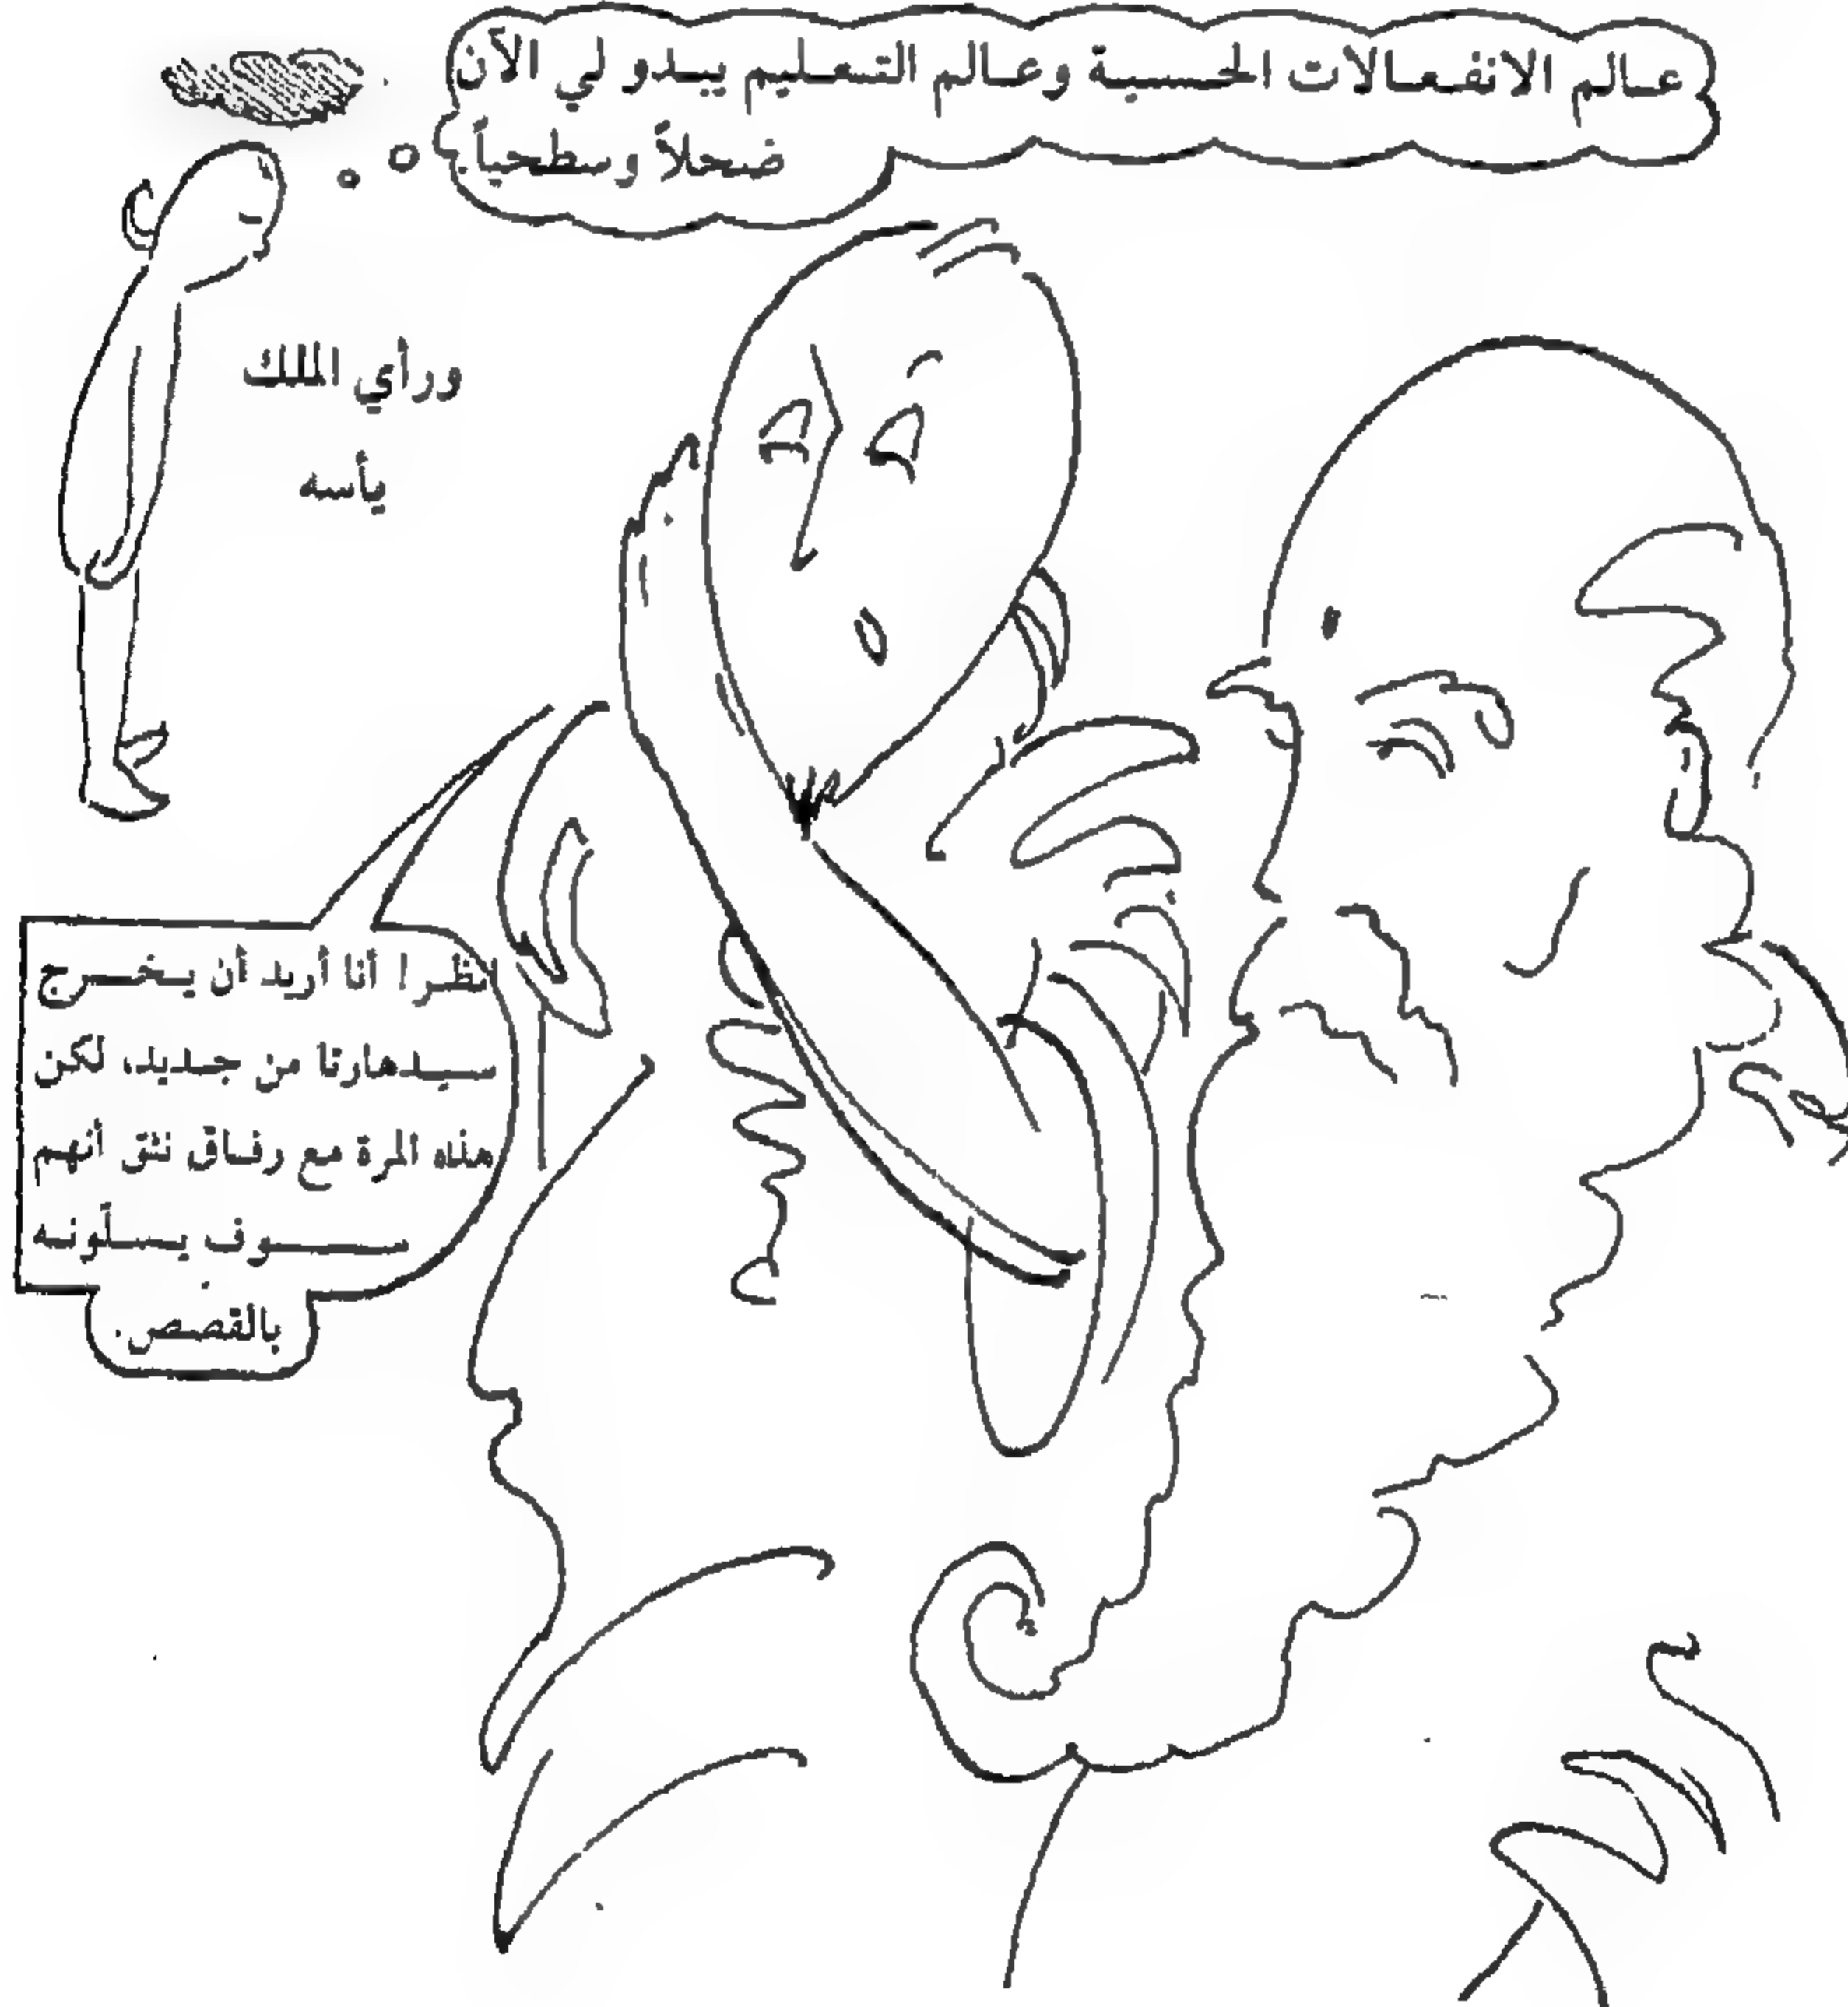 عالم الانفعالات الحسية وعالم التعليم يبدو لي الآن
ضحلاً وسطحياً.
ورأي الملك
يأسه
انظرا أنا أريد أن يخرج
سيدهارتا من جديد، لكن
هذه المرة مع رفاق نثق أنهم
سوف يسلونه
بالقصص.